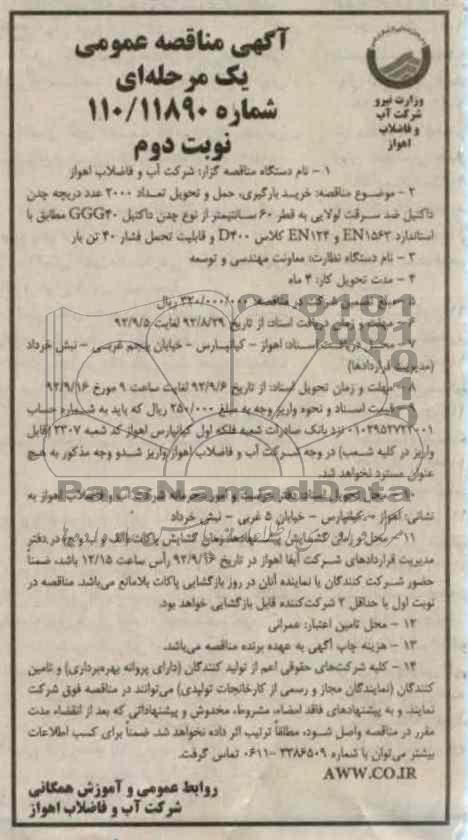 آگهی مناقصه عمومی
یک مرحله‌ای
شماره ۱۱۰/۱۱۸۹۰
نوبت دوم
وزارت نیرو
شرکت آب
و فاضلاب
اهواز
۱ - نام دستگاه مناقصه گزار: شرکت آب و فاضلاب اهواز
۲ - موضوع مناقصه: خرید بارگیری، حمل و تحویل تعداد ۲۰۰۰ عدد دریچه چدن
داکتیل ضد سرقت لولایی به قطر ۶۰ سانتیمتر از نوع چدن داکتیل GGG۴۰ مطابق با
استاندارد EN۱۵۶۳ و EN۱۲۴ کلاس D۴۰۰ و قابلیت تحمل فشار ۴۰ تن بار
۳ - نام دستگاه نظارت: معاونت مهندسی و توسعه
۴ - مدت تحویل کار: ۴ ماه
۵ - مبلغ تضمین شرکت در مناقصه: ۳۲۰/۰۰۰/۰۰۰ ریال
۶ - مهلت و زمان دریافت اسناد: از تاریخ ۹۲/۸/۲۹ لغایت ۹۲/۹/۵
۷ - محل دریافت اسناد: اهواز - کیانپارس - خیابان پنجم غربی - نبش خرداد
(مدیریت قراردادها)
۸ - مهلت و زمان تحویل اسناد: از تاریخ ۹۲/۹/۶ لغایت ساعت ۹ مورخ ۹۲/۹/۱۶
۹ - قیمت اسناد و نحوه واریز وجه به مبلغ ۲۵۰/۰۰۰ ریال که باید به شماره حساب
نزد بانک صادرات شعبه فلکه اول کیانپارس اهواز کد شعبه ۲۳۰۷ (قابل
واریز در کلیه شعب) در وجه شرکت آب و فاضلاب اهواز واریز شدو وجه مذکور به هیچ
عنوان مسترد نخواهد شد.
۱۰ - محل تحویل اسناد: دفتر حراست و امور محرمانه شرکت آب و فاضلاب اهواز به
نشانی: اهواز - کیانپارس - خیابان ۵ غربی - نبش خرداد
۱۱ - محل و زمان گشایش پیشنهادها: زمان گشایش پاکات (الف و ب و ج) در دفتر
مدیریت قراردادهای شرکت آبفا اهواز در تاریخ ۹۲/۹/۱۶ رأس ساعت ۱۲/۱۵ باشد، ضمناً
حضور شرکت کنندگان یا نماینده آنان در روز بازگشایی پاکات بلامانع می‌باشد. مناقصه در
نوبت اول با حداقل ۳ شرکت‌کننده قابل بازگشایی خواهد بود.
۱۲ - محل تامین اعتبار: عمرانی
۱۳ - هزینه چاپ آگهی به عهده برنده مناقصه می‌باشد.
۱۴ - کلیه شرکت‌های حقوقی اعم از تولید کنندگان (دارای پروانه بهره‌برداری) و تامین
کنندگان (نمایندگان مجاز و رسمی از کارخانجات تولیدی) می‌توانند در مناقصه فوق شرکت
نمایند. و به پیشنهادهای فاقد امضاء، مشروط، مخدوش و پیشنهاداتی که بعد از انقضاء مدت
مقرر در مناقصه واصل شود، مطلقاً ترتیب اثر داده نخواهد شد. ضمناً برای کسب اطلاعات
بیشتر می‌توان با شماره ۳۳۸۶۵۰۹-۰۶۱۱ تماس گرفت.
AWW.CO.IR
روابط عمومی و آموزش همگانی
شرکت آب و فاضلاب اهواز
ParsNamadData